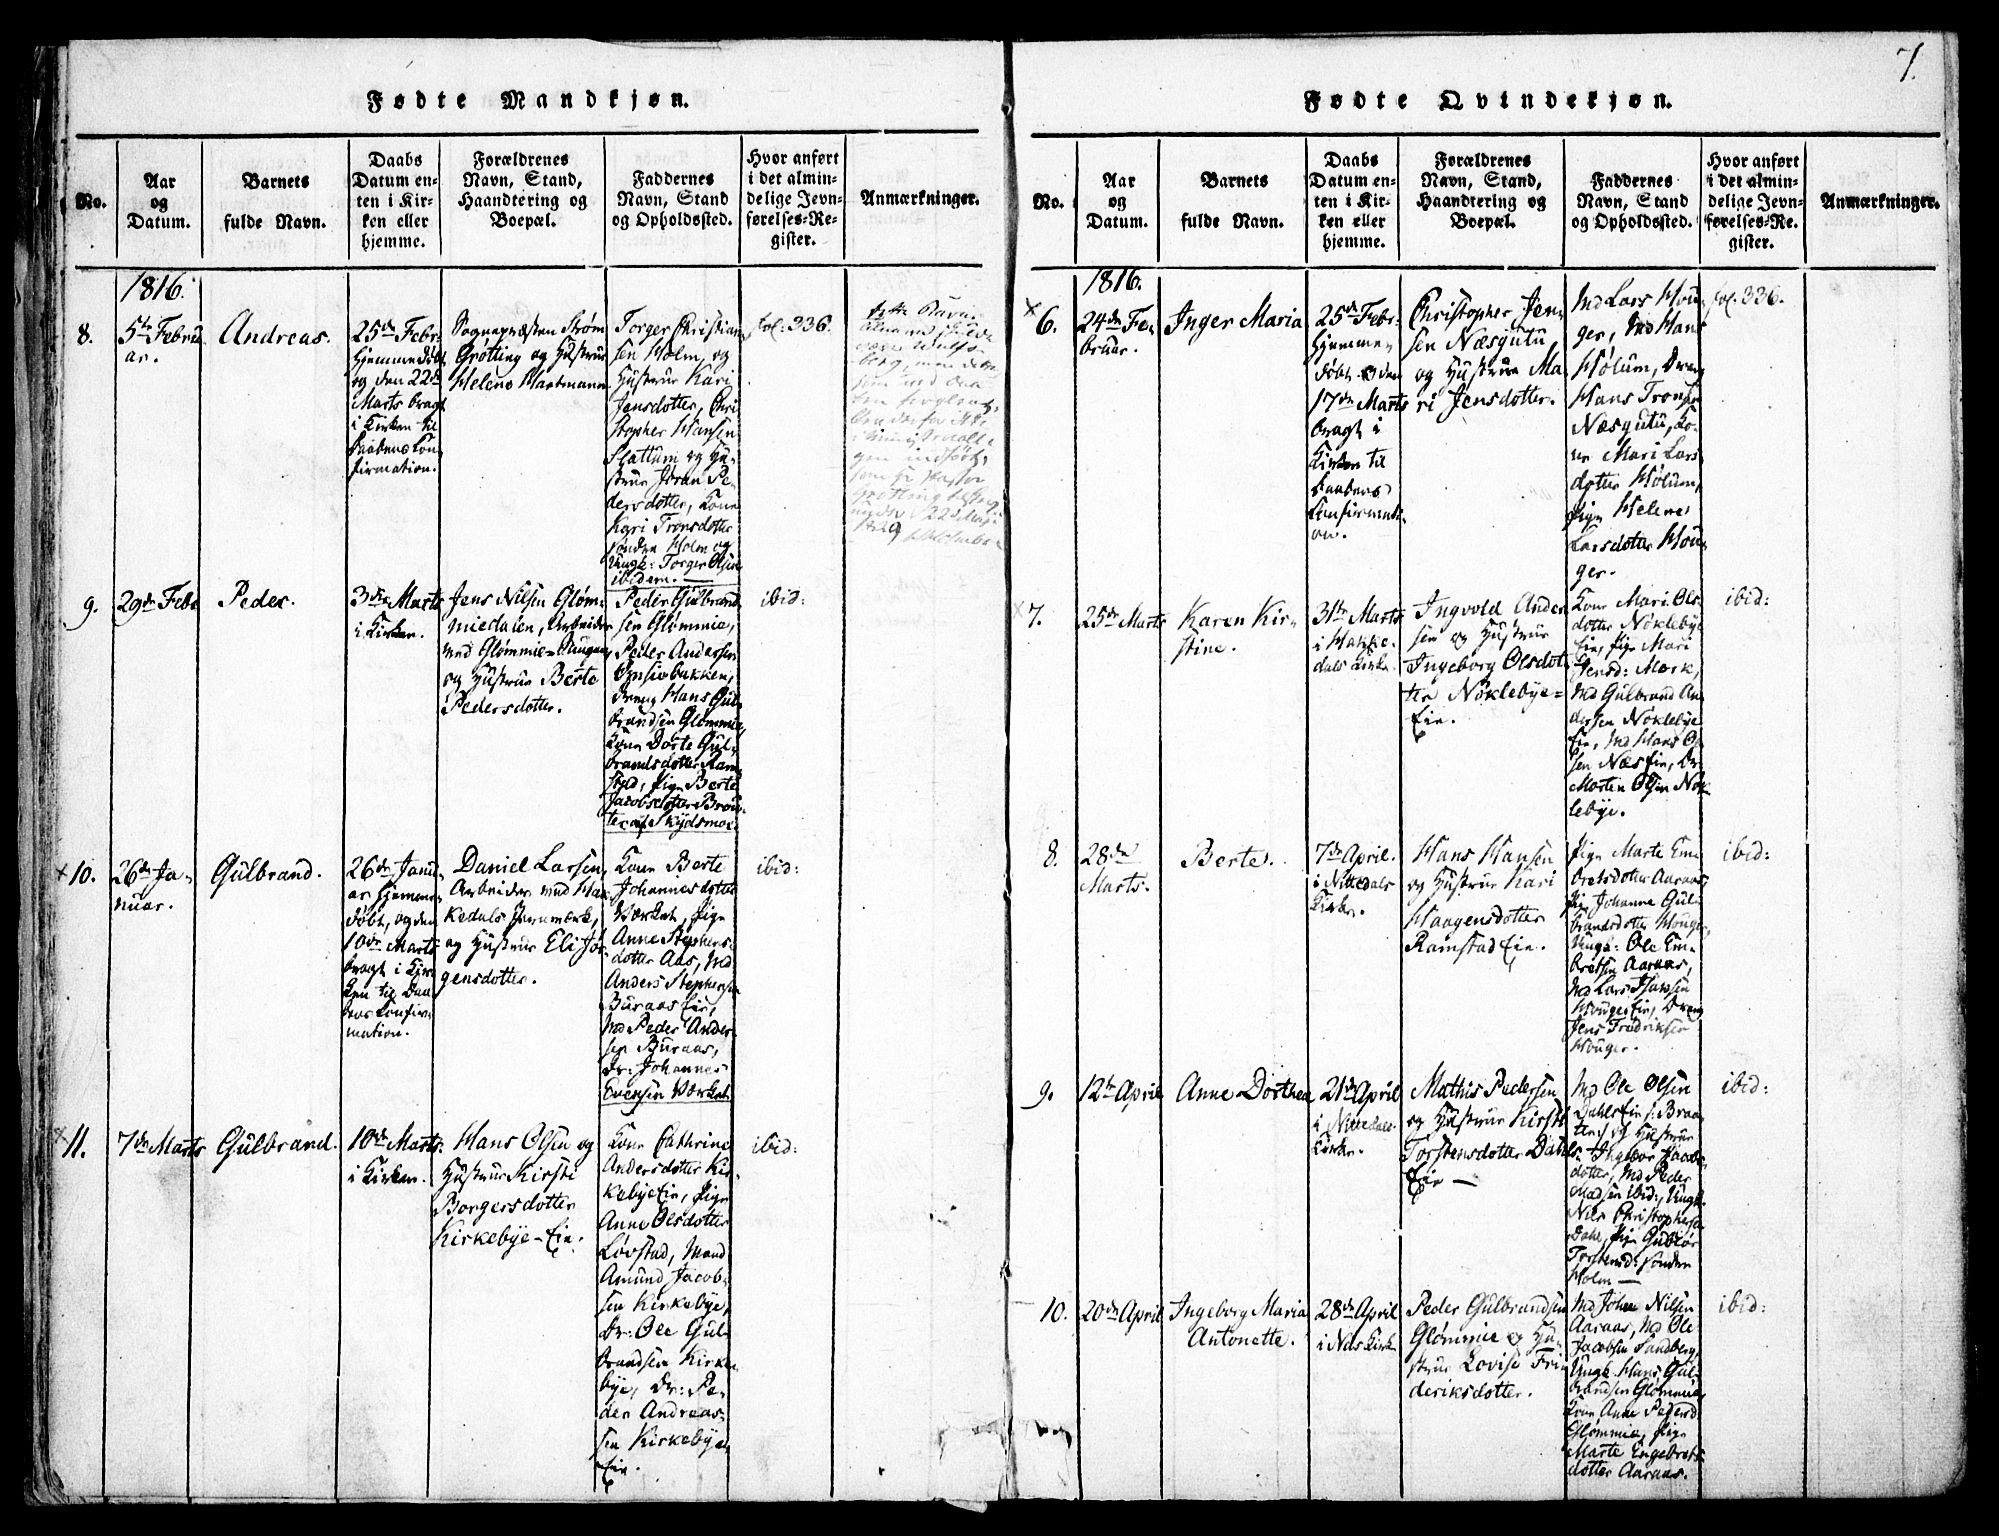 7.
Fødte Mandkjøn.
No.
Aar
og
Datum.
Barnets
fulde Navn.
Daabs
Datum en-
ten i Kir-
ken eller
hjemme.
Forældrenes
Navn, Stand,
Haandtering og
Boepæl.
Faddernes
Navn, Stand
og Opholdssted.
Hvor anført
i det almin-
delige Jevn-
førelses-Re-
gister.
Anmærkninger.
1816.
8.
5te Febru
ar.
Andreas.
25de Febr.
Hjemmedøbt
og den 22de
Marts bragt
i Kirken til
Daabens Con-
firmation.
Sognepræsten Strøm
Grøtting og Hustrue
Helene Hartmann.
Torger Christian-
sen Holm, og
Hustrue Kari
Jensdotter, Chri
stopher Hansen
Slattum og Hu-
strue Jöran Pe-
dersdotter, Kone
Kari Tronsdotter
søndre Holm og
Ungk: Torger Olsen
ibidem.
fol: 336.
9.
29de Febr
Peder.
3die Marts
i Kirken.
Jens Nilsen Glöm-
miedalen, Arbeider
ved Glømmie-Saugene
og Hustrue Berte
Pedersdotter.
Peder Gulbrand
sen Glömmie,
Peder Andersen
Dreng Hans Gul-
brandsen Glömmie,
Kone Dorte Gul-
brandsdotter Ram-
stad, Pige Berte
Jacobsdotter
ibid:
10.
26de Ja-
nuar.
Gulbrand.
26de Janu-
ar Hjemme-
døbt, og den
10de Marts
bragt i Kir-
ken til Daa-
bens Confir-
mation.
Daniel Larsen,
Arbeider ved Hak-
kedals Jernværk,
og Hustrue Eli Jör-
gensdotter.
Kone Berte
Johannesdotter
Værket, Pige
Anne Stephens-
dotter Aas, Md
Anders Stephensen
Buraas Eie,
Md Peder Ander-
sen Buraas,
Dr: Johannes
Evensen Værket.
ibid:
11.
7de Marts
Gulbrand.
10de Marts
i Kirken.
Hans Olsen og
Hustrue Kirsti
Borgersdotter
Kirkebye-Eie.
Kone Cathrine
Andersdotter Kir-
kebyeEie, Pige
Anne Olsdotter
Løvstad, Mand
Amund Jacob-
sen Kirkebye,
Dr: Ole Gul-
brandsen Kirke-
bye, Dr: Pe-
der Andreas-
sen Kirkebye
Eie.
ibid:
Fødte Qvindekjøn.
No.
Aar
og
Datum.
Barnets
fulde Navn.
Daabs
Datum en-
ten i Kir-
ken eller
hjemme.
Forældrenes
Navn, Stand,
Haandtering og
Boepæl.
Faddernes
Navn, Stand
og Opholdssted.
Hvor anført
i det almin-
delige Jevn-
førelses-Re-
gister.
Anmærkninger.
1816.
6.
24de Fe-
bruar.
Inger Maria
25de Febr.
Hjemme-
døbt
17de Marts
bragt i
Kirken til
Daabens
Confirmati-
on.
Christopher Jen-
sen Næsgutu
og Hustrue Ma-
ri Jensdotter.
Md Lars Hou-
ger, Md Hans
Hölum, Dreng
Hans Tronsen
Næsgutu, Ko-
ne Mari Lars-
dotter Hölum,
Pige Helene
Larsdotter Hou-
ger.
fol. 336.
7.
25de Marts
Karen Kir-
stine.
31te Marts
i Hakke-
dals Kirke.
Ingvold Ander
sen og Hustrue
Ingeborg Olsdot-
ter Nöklebye-
Eie.
Kone Mari Ols-
dotter Nöklebye
Eie, Pige Mari
Jensd: Mærk,
Md Gulbrand An-
dersen Nöklebye
Eie, Md Hans Ol-
sen Næs Eie, Dr:
Morten Olsen Nök-
lebye.
ibid:
8.
28de
Marts.
Berte.
7de April.
i Nittedals
Kirke.
Hans Hansen
og Hustrue Kari
Haagensdotter
Ramstad Eie.
Pige Marte Em-
bretsdotter Aaraas,
Pige Johanne Gul-
brandsdotter Houger
Ungk: Ole Em-
bretsen Aaraas,
Md Lars Hansen
HougerEie, Dreng
Jens Fredriksen
Houger.
ibid:
9.
12te April
Anne Dorthea
21de April
i Nittedals
Kirke.
Mathis Pedersen
og Hustrue Kirsti
Torstensdotter Dahls
Eie
Md Ole Olsen
DahlsEie (: Braa-
ten :) og Hustrue
Ingebor Jacobs-
dotter, Md Peder
Madsen ibid:, Ungk:
Nils Christophersen
Dahl, Pige
Torstensd: söndre
Holm
ibid:
10.
20de April
Ingeborg Maria
Antonette.
28de April
i Næs Kirke
Peder Gulbrandsen
Glömmie og Hu-
strue Lovise Fri
deriksdotter.
Md Johan Nilsen
Aaraas, Md Ole
Jacobsen Sandberg,
Ungk. Hans Gul-
brandsen Glömmie,
Kone Anne Pedersd
Glömmie, Pige
Marte Engebrets-
dotter Aaraas.
ibid: